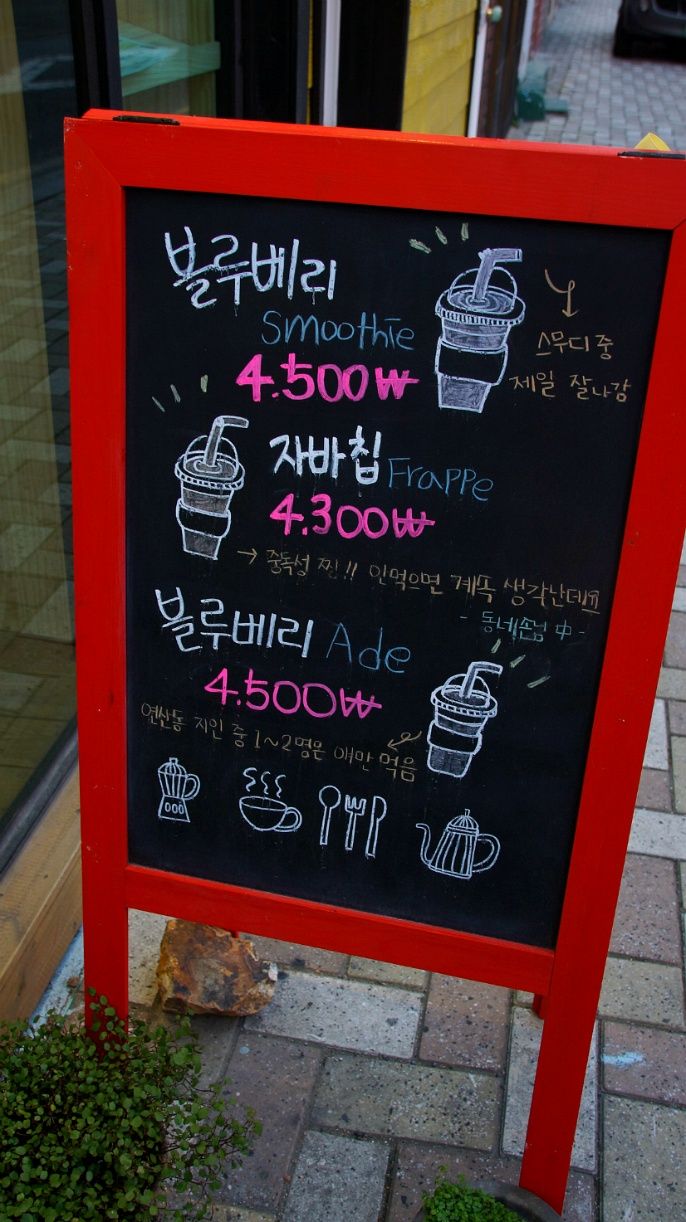 블루베리
Smoothie
4.500₩
스무디 중
제일 잘나감
자바칩 Frappe
4.300₩
→ 중독성 찐!! 안먹으면 계똑 생각난데요
- 동네손님 中 -
블루베리 Ade
4.500₩
연산동 지인 중 1~2명은 얘만 먹음